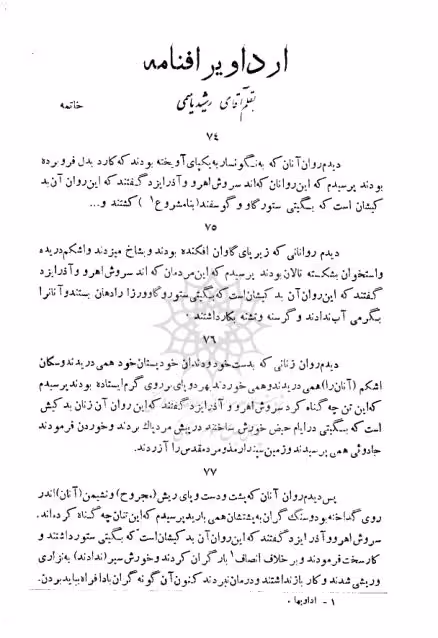 ارداویرافنامه
بقلم آقای رشید یاسمی
خاتمه
۷۴
دیدم روان آنان که به نگونسار به یکپای آویخته بودند که کارد بدل فرو برده
بودند پرسیدم که این روانان که‌اند سروش اهرو و آذر ایزد گفتند که این روان آن بد
کیشان است که بگیتی ستور گاو و گوسفند (بنا مشروع ۱) کشتند و...
۷۵
دیدم روانانی که زیر پای گاوان افکنده بودند و بشاخ میزدند و اشکم دریده
و استخوان بشکسته نالان بودند پرسیدم که این مردمان که اند سروش اهرو و آذر ایزد
گفتند که این روان آن بد کیشان است که بگیتی ستور و گاو ورزا را دهان بستند و آنانرا
بگرمی آب ندادند و گرسنه و تشنه بکار داشتند ٠
۷۶
دیدم روان زنانی که بدست خود و دندان خود پستان خود همی دریدند و سگان
اشکم (آنان را) همی دریدند و همی خوردند بهر دو پای بر روی گرم ایستاده بودند پرسیدم
که این تن چه گناه کرد سروش اهرو و آذر ایزد گفتند که این روان آن زنان بد کیش
است که بگیتی در ایام حیض خورش ساختند در پیش مرد پاك بردند و خوردن فرمودند
جادوئی همی پرسیدند و زمین سپندارمذ و مرد مقدس را آزردند.
۷۷
پس دیدم روان آنان که پشت و دست و پای ریش (مجروح) و نشیمن (آنان) اندر
روی گداخته بود و سنگ گران به پشتشان همی بارید پرسیدم که این تنان چه گناه کرده‌اند.
سروش اهرو و آذر ایزد گفتند که این روان آن بد کیشان است که بگیتی ستور داشتند و
کار سخت فرمودند و بر خلاف انصاف ۱ بار گران کردند و خورش سیر (ندادند) به نزاری
و ریشی شدند و کار باز نداشتند و درمان نبردند کنون آن گونه گران بادافراه بباید بردن.
۱ - اداویها ٠